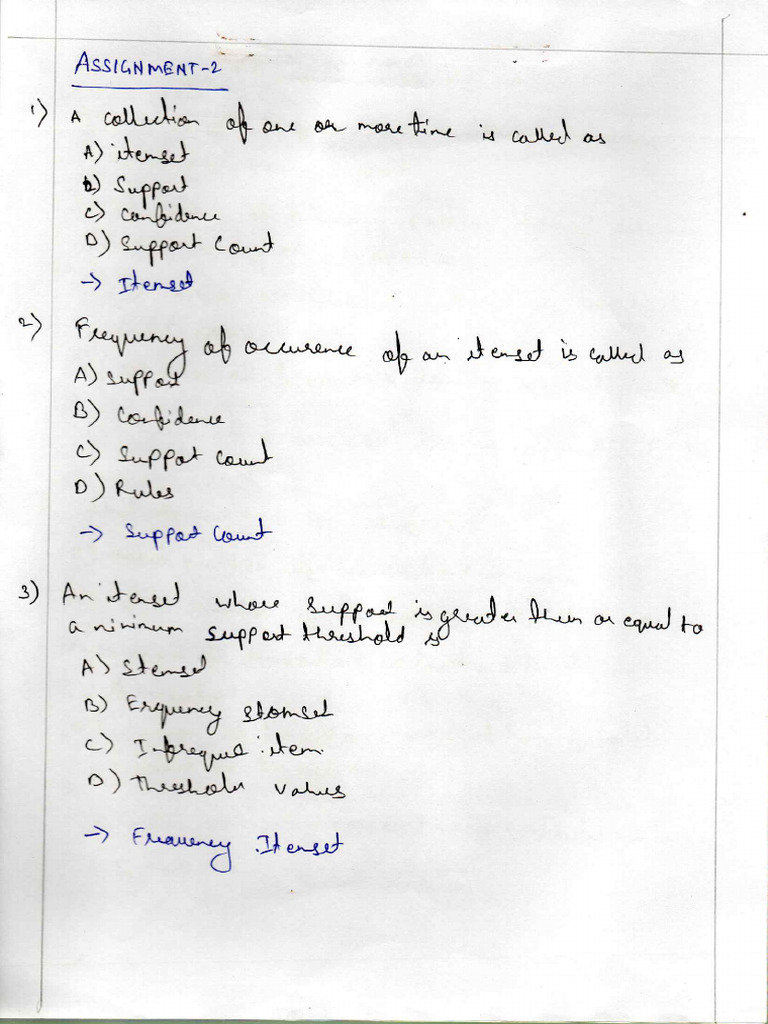 ASSIGNMENT-2
1) A collection of one or more time is called as
A) itemset
b) Support
C) Confidence
D) Support Count
-> Itemset
2) Frequency of occurence of an itemset is called as
A) support
B) Confidence
C) Support Count
D) Rules
-> Support Count
3) An itemset whose support is greater then or equal to
a minimum support threshold is
A) Stemset
B) Erquency stomset
C) item
D) values
-> Frequency Itemset